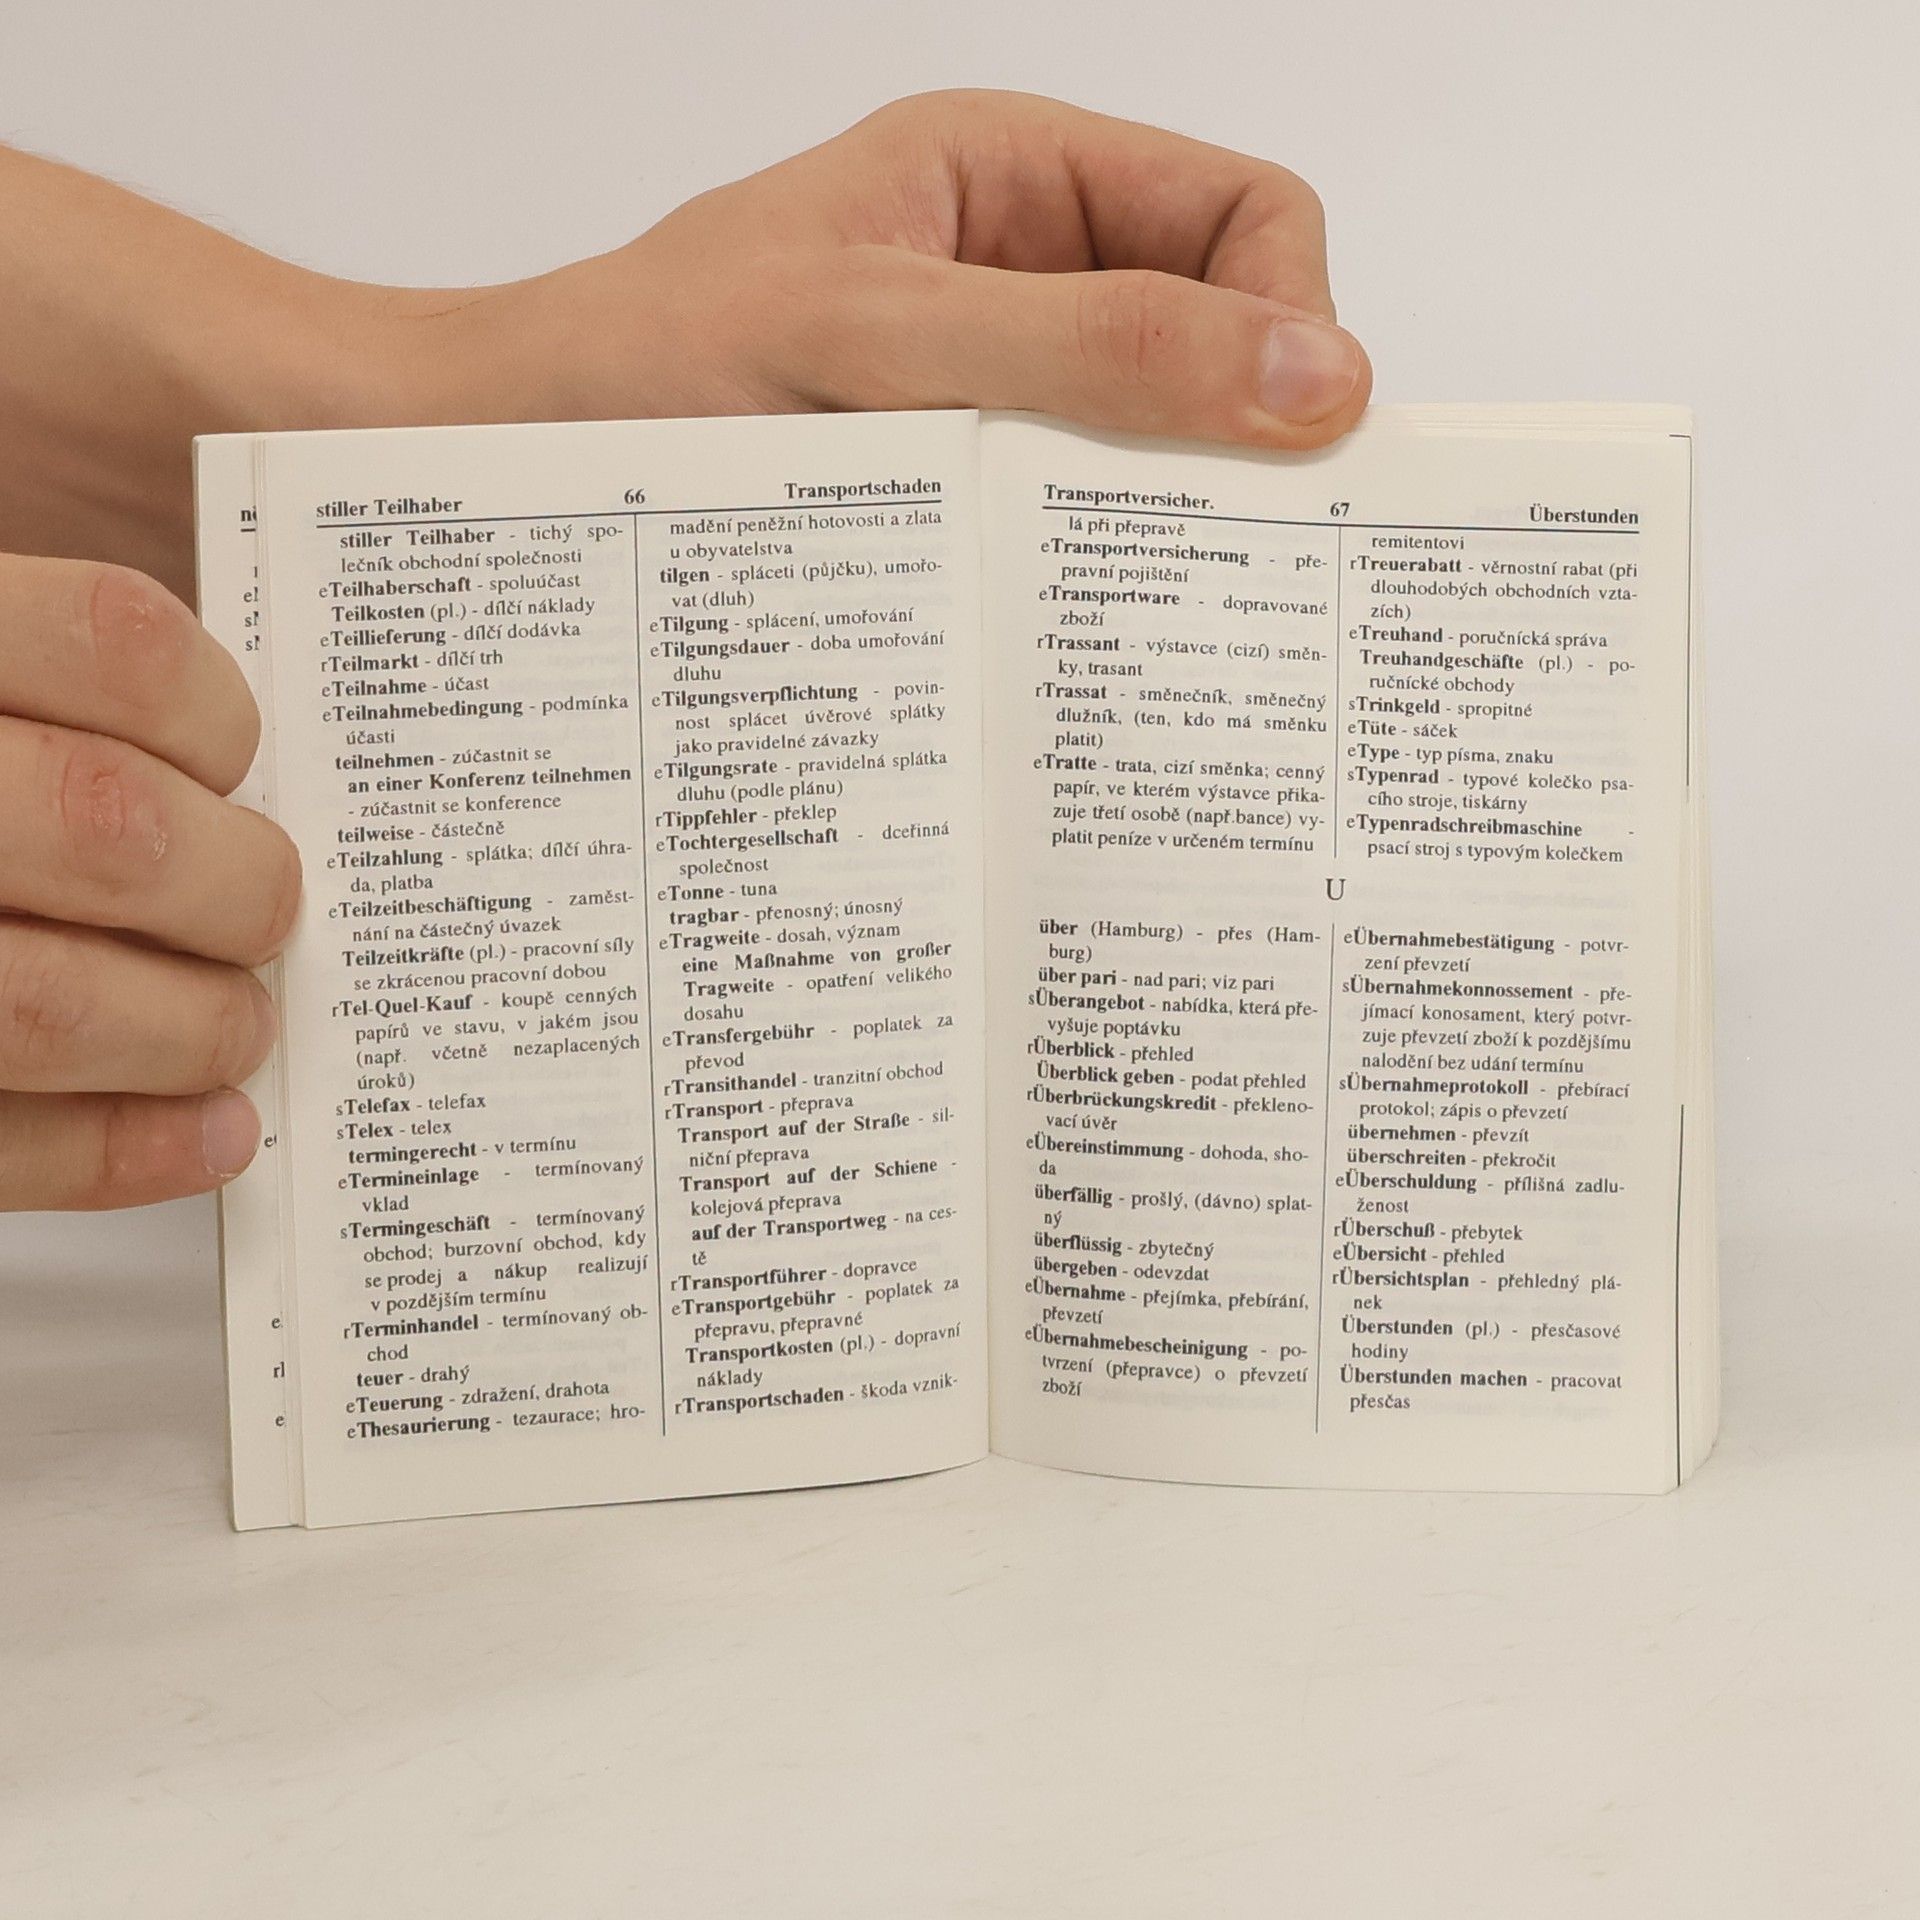 stiller Teilhaber 66 Transportschaden
stiller Teilhaber - tichý spo-
lečník obchodní společnosti
eTeilhaberschaft - spoluúčast
Teilkosten (pl.) - dílčí náklady
eTeillieferung - dílčí dodávka
rTeilmarkt - dílčí trh
eTeilnahme - účast
eTeilnahmebedingung - podmínka
účasti
teilnehmen - zúčastnit se
an einer Konferenz teilnehmen
- zúčastnit se konference
teilweise - částečně
eTeilzahlung - splátka; dílčí úhra-
da, platba
eTeilzeitbeschäftigung - zaměst-
nání na částečný úvazek
Teilzeitkräfte (pl.) - pracovní síly
se zkrácenou pracovní dobou
rTel-Quel-Kauf - koupě cenných
papírů ve stavu, v jakém jsou
(např. včetně nezaplacených
úroků)
sTelefax - telefax
sTelex - telex
termingerecht - v termínu
eTermineinlage - termínovaný
vklad
sTermingeschäft - termínovaný
obchod; burzovní obchod, kdy
se prodej a nákup realizují
v pozdějším termínu
rTerminhandel - termínovaný ob-
chod
teuer - drahý
eTeuerung - zdražení, drahota
eThesaurierung - tezaurace; hro-
madění peněžní hotovosti a zlata
u obyvatelstva
tilgen - spláceti (půjčku), umořo-
vat (dluh)
eTilgung - splácení, umořování
eTilgungsdauer - doba umořování
dluhu
eTilgungsverpflichtung - povin-
nost splácet úvěrové splátky
jako pravidelné závazky
eTilgungsrate - pravidelná splátka
dluhu (podle plánu)
rTippfehler - překlep
eTochtergesellschaft - dceřinná
společnost
eTonne - tuna
tragbar - přenosný; únosný
eTragweite - dosah, význam
eine Maßnahme von großer
Tragweite - opatření velikého
dosahu
eTransfergebühr - poplatek za
převod
rTransithandel - tranzitní obchod
rTransport - přeprava
Transport auf der Straße - sil-
niční přeprava
Transport auf der Schiene -
kolejová přeprava
auf der Transportweg - na ces-
tě
rTransportführer - dopravce
eTransportgebühr - poplatek za
přepravu, přepravné
Transportkosten (pl.) - dopravní
náklady
rTransportschaden - škoda vznik-
Transportversicher. 67 Überstunden
lá při přepravě
eTransportversicherung - pře-
pravní pojištění
eTransportware - dopravované
zboží
rTrassant - výstavce (cizí) směn-
ky, trasant
rTrassat - směnečník, směnečný
dlužník, (ten, kdo má směnku
platit)
eTratte - trata, cizí směnka; cenný
papír, ve kterém výstavce přika-
zuje třetí osobě (např.bance) vy-
platit peníze v určeném termínu
remitentovi
rTreuerabatt - věrnostní rabat (při
dlouhodobých obchodních vzta-
zích)
eTreuhand - poručnícká správa
Treuhandgeschäfte (pl.) - po-
ručnícké obchody
sTrinkgeld - spropitné
eTüte - sáček
eType - typ písma, znaku
sTypenrad - typové kolečko psa-
cího stroje, tiskárny
eTypenradschreibmaschine -
psací stroj s typovým kolečkem
U
über (Hamburg) - přes (Ham-
burg)
über pari - nad pari; viz pari
sÜberangebot - nabídka, která pře-
vyšuje poptávku
rÜberblick - přehled
Überblick geben - podat přehled
rÜberbrückungskredit - překleno-
vací úvěr
eÜbereinstimmung - dohoda, sho-
da
überfällig - prošlý, (dávno) splat-
ný
überflüssig - zbytečný
übergeben - odevzdat
eÜbernahme - přejímka, přebírání,
převzetí
eÜbernahmebescheinigung - po-
tvrzení (přepravce) o převzetí
zboží
eÜbernahmebestätigung - potvr-
zení převzetí
sÜbernahmekonnossement - pře-
jímací konosament, který potvr-
zuje převzetí zboží k pozdějšímu
nalodění bez udání termínu
sÜbernahmeprotokoll - přebírací
protokol; zápis o převzetí
übernehmen - převzít
überschreiten - překročit
eÜberschuldung - přílišná zadlu-
ženost
rÜberschuß - přebytek
eÜbersicht - přehled
rÜbersichtsplan - přehledný plá-
nek
Überstunden (pl.) - přesčasové
hodiny
Überstunden machen - pracovat
přesčas